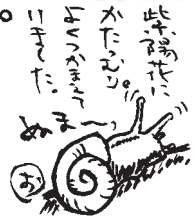 紫陽花に
かたつむり。
よくつかまえて
いきてた。
ぬまーっ
お